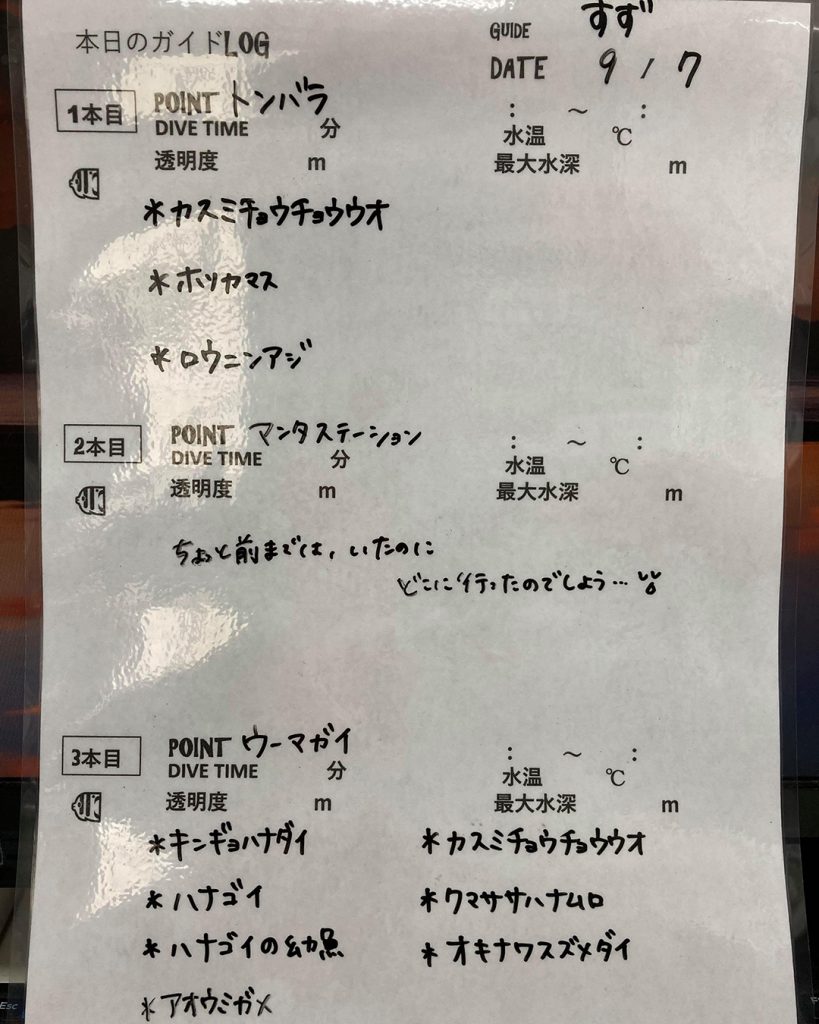 本日のガイドLOG
GUIDE すず
DATE 9/7
1本目 POINT トンバラ : ～ :
DIVE TIME 分 水温 ℃
透明度 m 最大水深 m
*カスミチョウチョウウオ
*ホソカマス
*ロウニンアジ
2本目 POINT マンタステーション : ～ :
DIVE TIME 分 水温 ℃
透明度 m 最大水深 m
ちょっと前までは、いたのに
どこに行ったのでしょう…
3本目 POINT ウーマガイ : ～ :
DIVE TIME 分 水温 ℃
透明度 m 最大水深 m
*キンギョハナダイ *カスミチョウチョウウオ
*ハナゴイ *クマササハナムロ
*ハナゴイの幼魚 *オキナワスズメダイ
*アオウミガメ
Esc